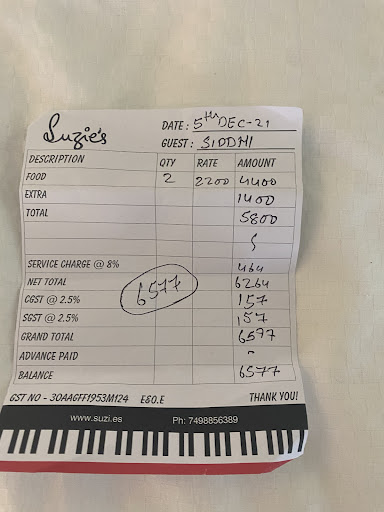 Suzie's
DATE: 5th DEC-21
GUEST: SIDDHI
DESCRIPTION QTY RATE AMOUNT
FOOD 2 2200 4400
EXTRA 1400
TOTAL 5800
SERVICE CHARGE @ 8% 464
NET TOTAL 6264
6577
CGST @ 2.5% 157
SGST @ 2.5% 157
GRAND TOTAL 6577
ADVANCE PAID -
BALANCE 6577
GST NO - 30AAGFF1953M1Z4 E&O.E THANK YOU!
www.suzi.es Ph: 7498856389